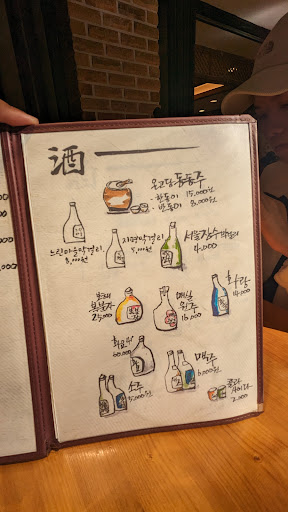 酒
온고당동동주
· 한동이 15,000원
· 반동이 8,000원
느린마을막걸리
8,000원
지평막걸리
5,000원
서울장수막걸리
4,000
복분자
25,000
매실
원주
16,000
화랑
14,000
화요
60,000
소주
5,000원
맥주
6,000원
콜라
사이다
2,000